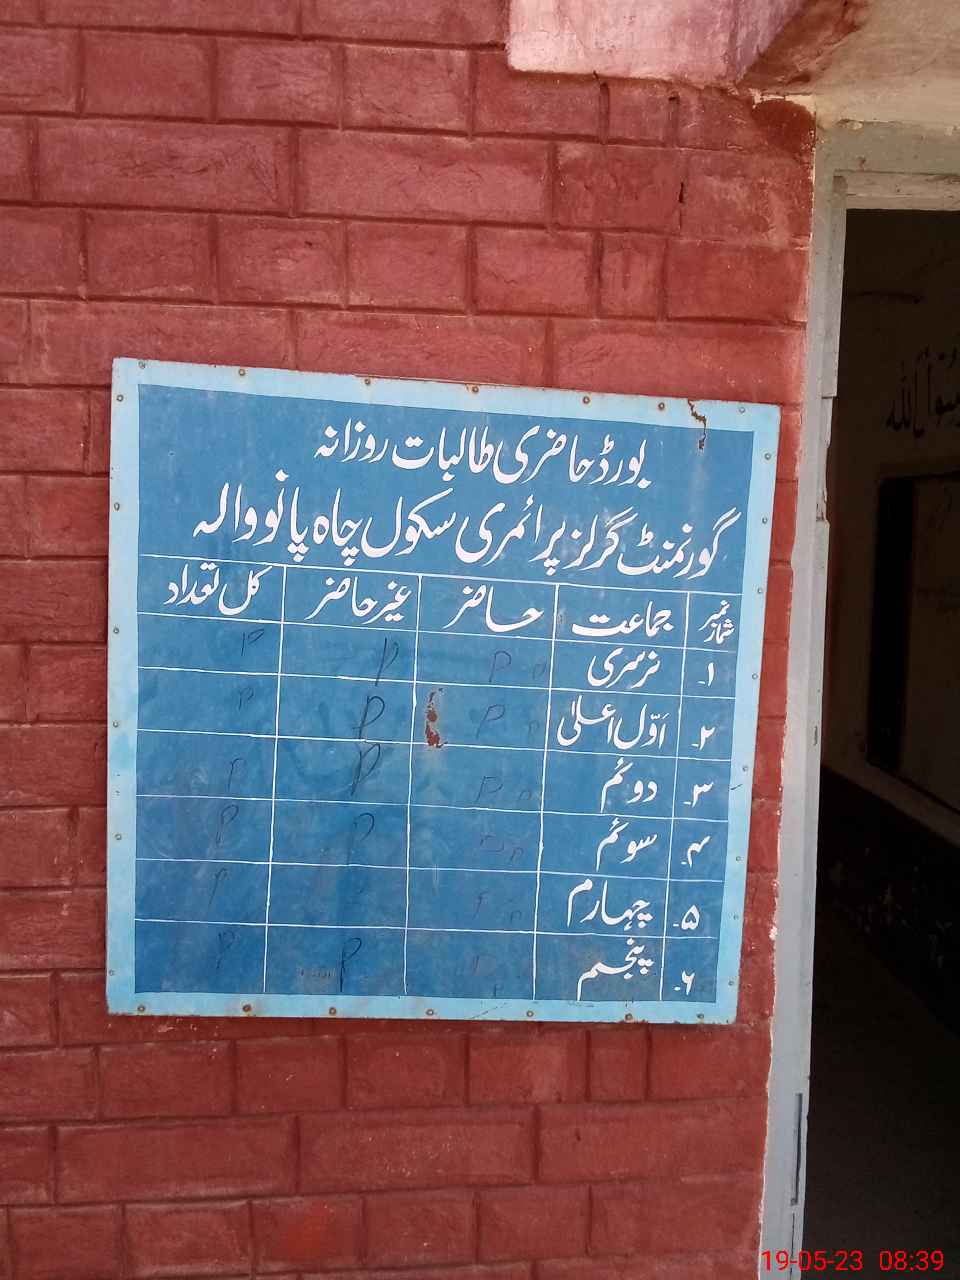 بورڈ حاضری طالبات روزانہ
گورنمنٹ گرلز پرائمری سکول چاہ پانووالہ
نمبر شمار جماعت حاضر غیر حاضر کل تعداد
۱۔ نرسری
۲۔ اوّل اعلیٰ
۳۔ دوئم
۴۔ سوئم
۵۔ چہارم
۶۔ پنجم
رسول اللہ
19-05-23 08:39